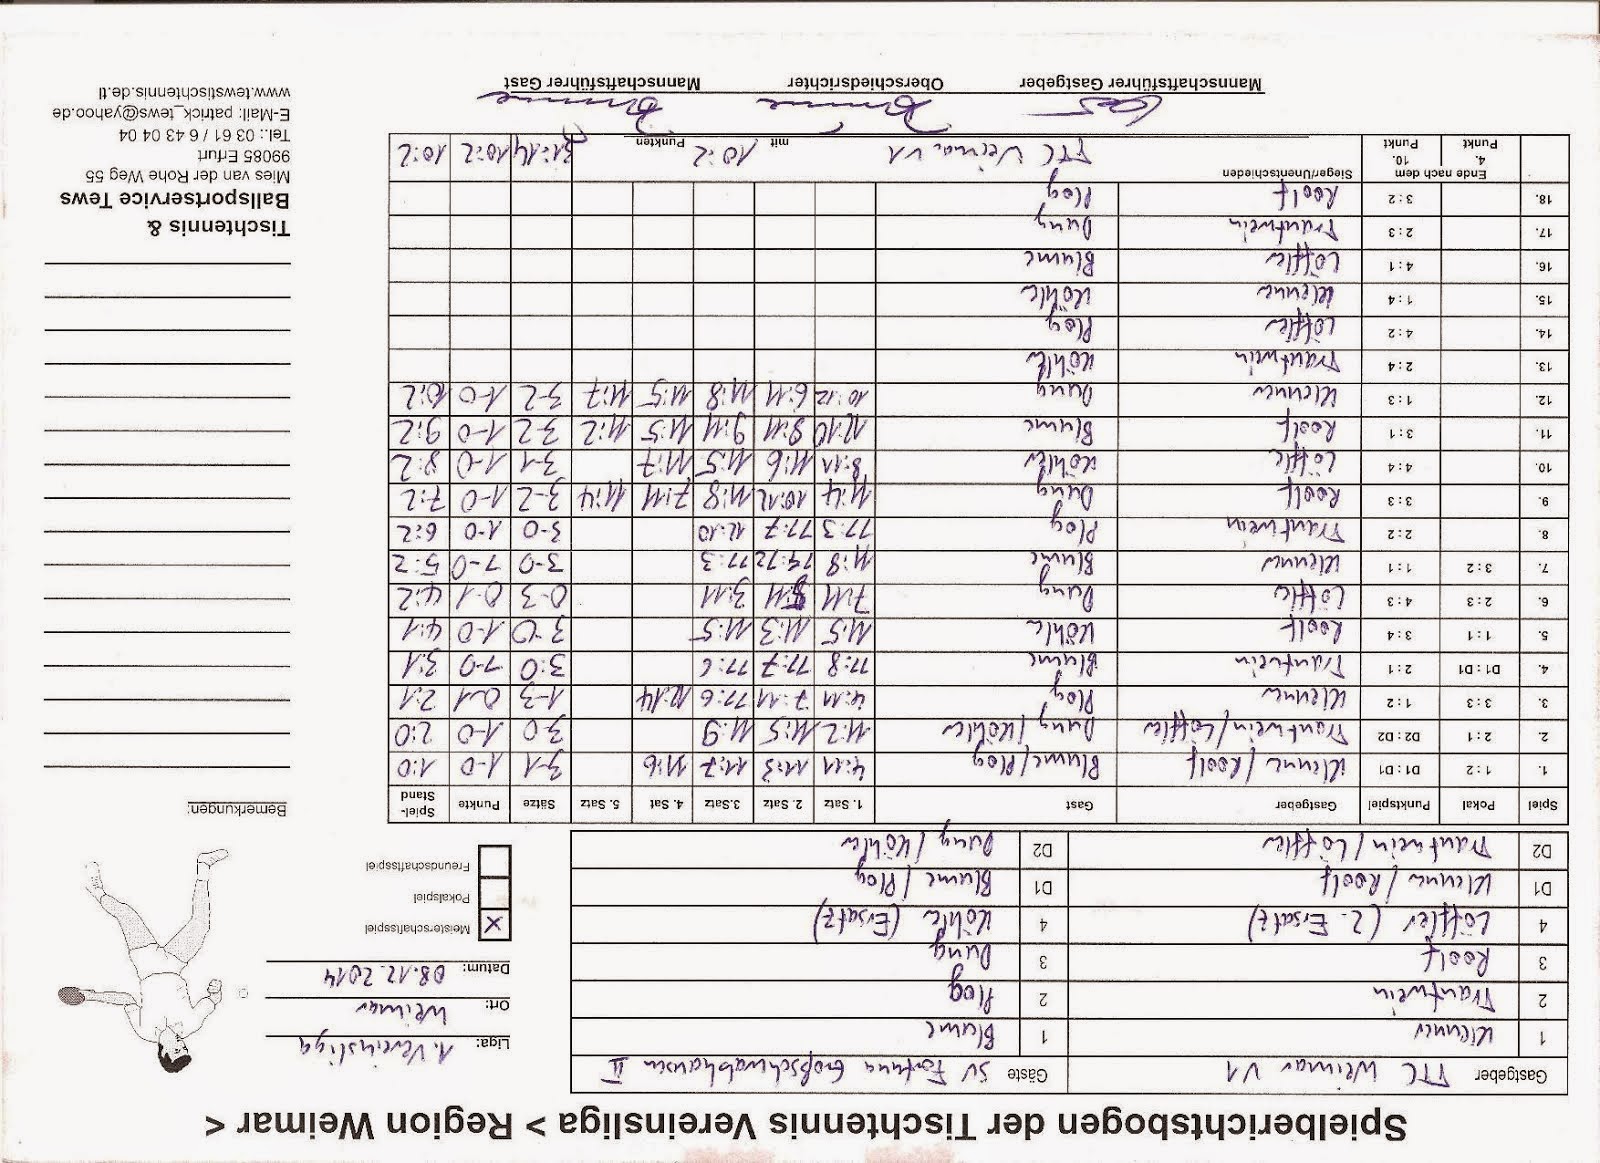 Spielberichtsbogen der Tischtennis Vereinsliga > Region Weimar <
Gastgeber TTC Weimar V1 Gäste SV Fortuna Großschwabhausen II
1 Klenner 1 Blume
2 Trautwein 2 Plog
3 Roolf 3 Dung
4 Löffler (2. Ersatz) 4 Köhler (Ersatz)
D1 Klenner / Roolf D1 Blume / Plog
D2 Trautwein / Löffler D2 Dung / Köhler
Liga: 1. Vereinsliga
Ort: Weimar
Datum: 08.12.2014
X Meisterschaftsspiel
Pokalspiel
Freundschaftsspiel
Bemerkungen:
Spiel Pokal Punktspiel Gastgeber Gast 1. Satz 2. Satz 3.Satz 4. Sat 5. Satz Sätze Punkte Spiel-Stand
1. 1 : 2 D1 : D1 Klenner / Roolf Blume / Plog 4:11 11:3 11:7 11:6 3-1 1-0 1:0
2. 2 : 1 D2 : D2 Trautwein / Löffler Dung / Köhler 11:2 11:5 11:9 3-0 1-0 2:0
3. 3 : 3 1 : 2 Klenner Plog 4:11 7:11 11:6 12:14 1-3 0-1 2:1
4. D1 : D1 2 : 1 Trautwein Blume 11:8 11:7 11:6 3:0 1-0 3:1
5. 1 : 1 3 : 4 Roolf Köhler 11:5 11:3 11:5 3-0 1-0 4:1
6. 2 : 3 4 : 3 Löffler Dung 7:11 3:11 0-3 0-1 4:2
7. 3 : 2 1 : 1 Klenner Blume 11:8 14:12 11:3 3-0 1-0 5:2
8. 2 : 2 Trautwein Plog 11:3 11:7 12:10 3-0 1-0 6:2
9. 3 : 3 Roolf Dung 11:4 10:12 11:8 7:11 11:4 3-2 1-0 7:2
10. 4 : 4 Löffler Köhler 8:11 11:6 11:5 11:7 3-1 1-0 8:2
11. 3 : 1 Roolf Blume 12:10 8:11 9:11 11:5 11:2 3-2 1-0 9:2
12. 1 : 3 Klenner Dung 10:12 6:11 11:8 11:5 11:7 3-2 1-0 10:2
13. 2 : 4 Trautwein Köhler
14. 4 : 2 Löffler Plog
15. 1 : 4 Klenner Köhler
16. 4 : 1 Löffler Blume
17. 2 : 3 Trautwein Dung
18. 3 : 2 Roolf Plog
Ende nach dem
4. Punkt 10. Punkt
Sieger/Unentschieden TTC Weimar V1 mit 10:2 Punkten 31:14 10:2 10:2
Mannschaftsführer Gastgeber Oberschiedsrichter Mannschaftsführer Gast
Tischtennis &
Ballsportservice Tews
Mies van der Rohe Weg 55
99085 Erfurt
Tel.: 03 61 / 6 43 04 04
E-Mail: patrick_tews@yahoo.de
www.tewstischtennis.de.tl